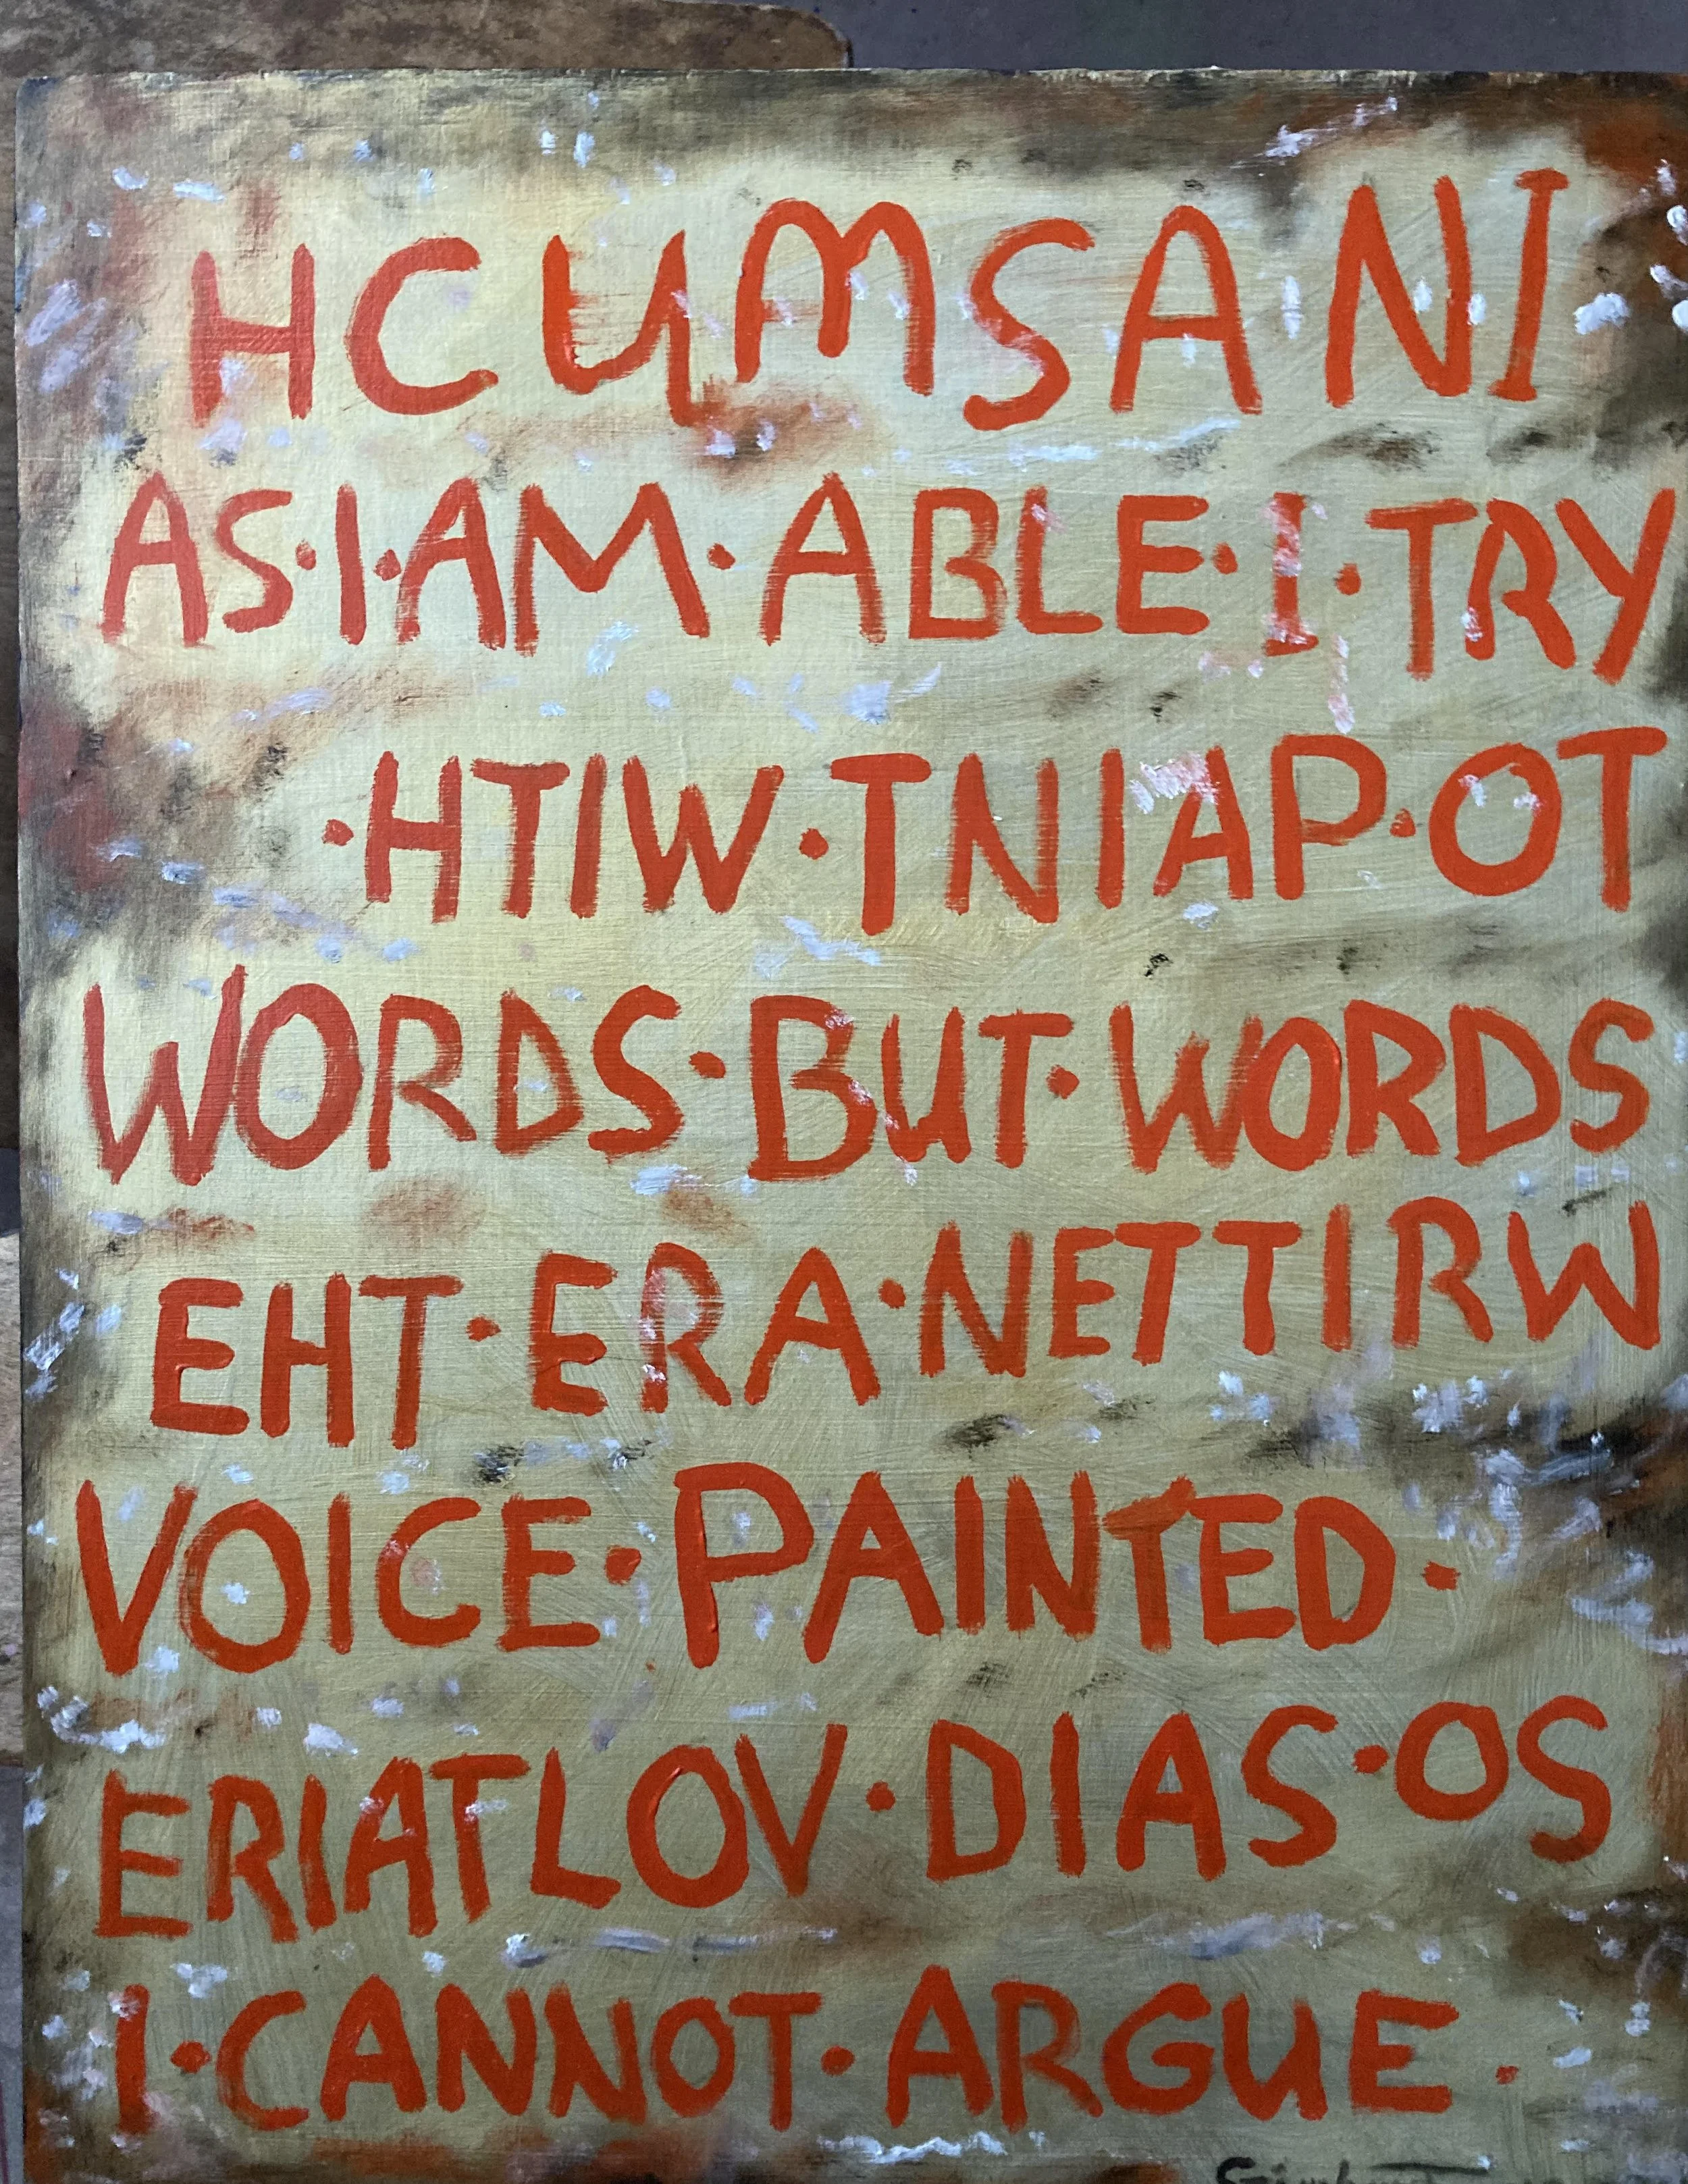 HCUMSANI
AS·I·AM·ABLE·I·TRY
·HTIW·TNIAP·OT
WORDS·BUT·WORDS
EHT·ERA·NETTIRW
VOICE·PAINTED·
ERIATLOV·DIAS·OS
I·CANNOT·ARGUE.